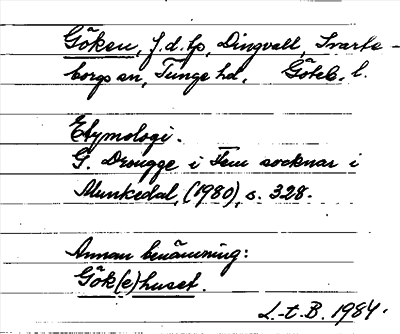 Göken, f.d. lp, Dingvall, Svarte-
borgs sn, Tunge hd, Göteb. l.
Etymologi.
G. Drougge i Fem socknar i
Munkedal, (1980), s. 328.
Annan benämning:
Gök(e)huset.
L-t. B. 1984.